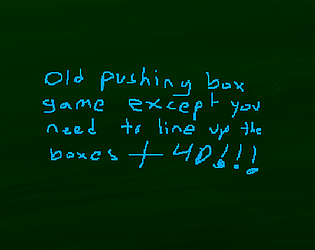 Old pushing box
game except you
need to line up the
boxes + 4D!!!